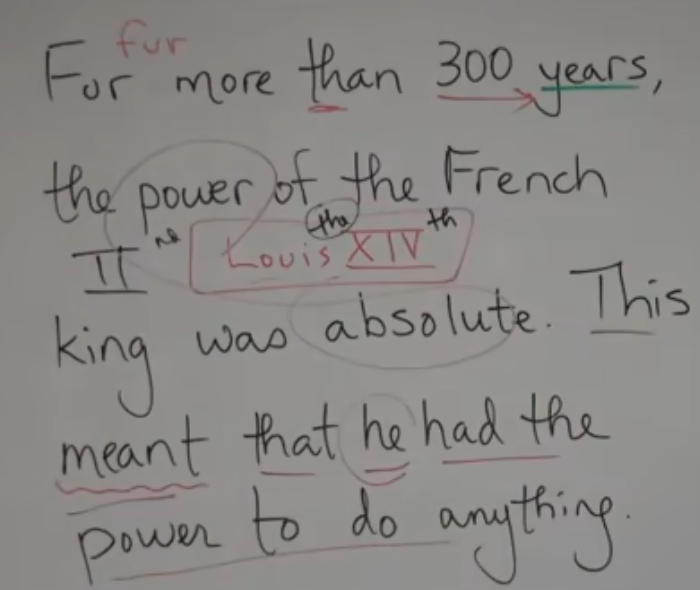 fur
For more than 300 years,
the power of the French
the
II ne Louis XIV th
king was absolute. This
meant that he had the
power to do anything.